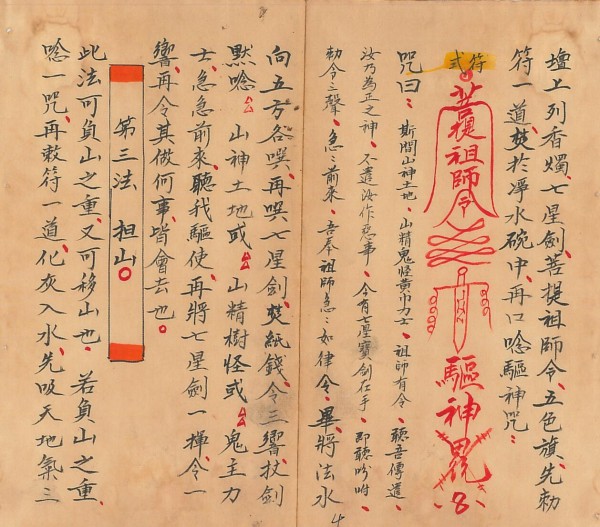 壇上列香燭、七星劍、菩提祖師令、五色旗、先勅
符一道、焚於凈水碗中、再口唸驅神咒：
符式
菩提祖師令
驅神
8
咒曰、斯間山神土地、山精鬼怪黃巾力士、祖師有令、聽吾傳遣、
汝乃為正之神、不遣汝作惡事、今有七星寶劍在手、即聽吩咐、
勅令三聲、急：前來、吾奉祖師急：如律令、畢、將法水
4
向五方各噀、再噀七星劍、焚紙錢、令三響、扙劍
默唸、山神土地或、山精樹怪或、鬼主力
士、急急前來、聽我驅使、再將七星劍一揮、令一
響、再令其做何事、皆會去也。
第三法 担山
此法可負山之重、又可移山也、若負山之重、
唸一咒、再敕符一道、化灰入水、先吸天地氣三